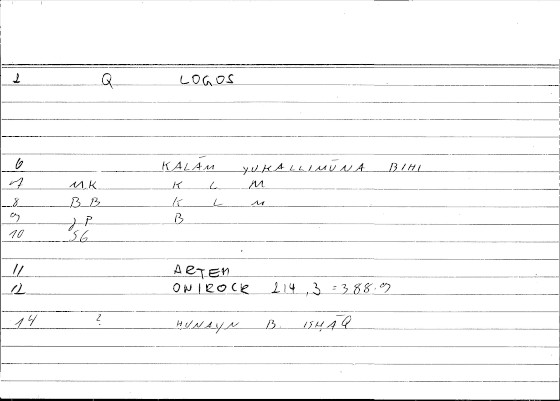 1 Q LOGOS
6 KALĀM YUKALLIMŪNA BIHI
7 MK K L M
8 BB K L M
9 JP B
10 SG
11 ARTEM
12 ONIROCR 214,3 = 388.9
14 ? HUNAYN B. ISHĀQ